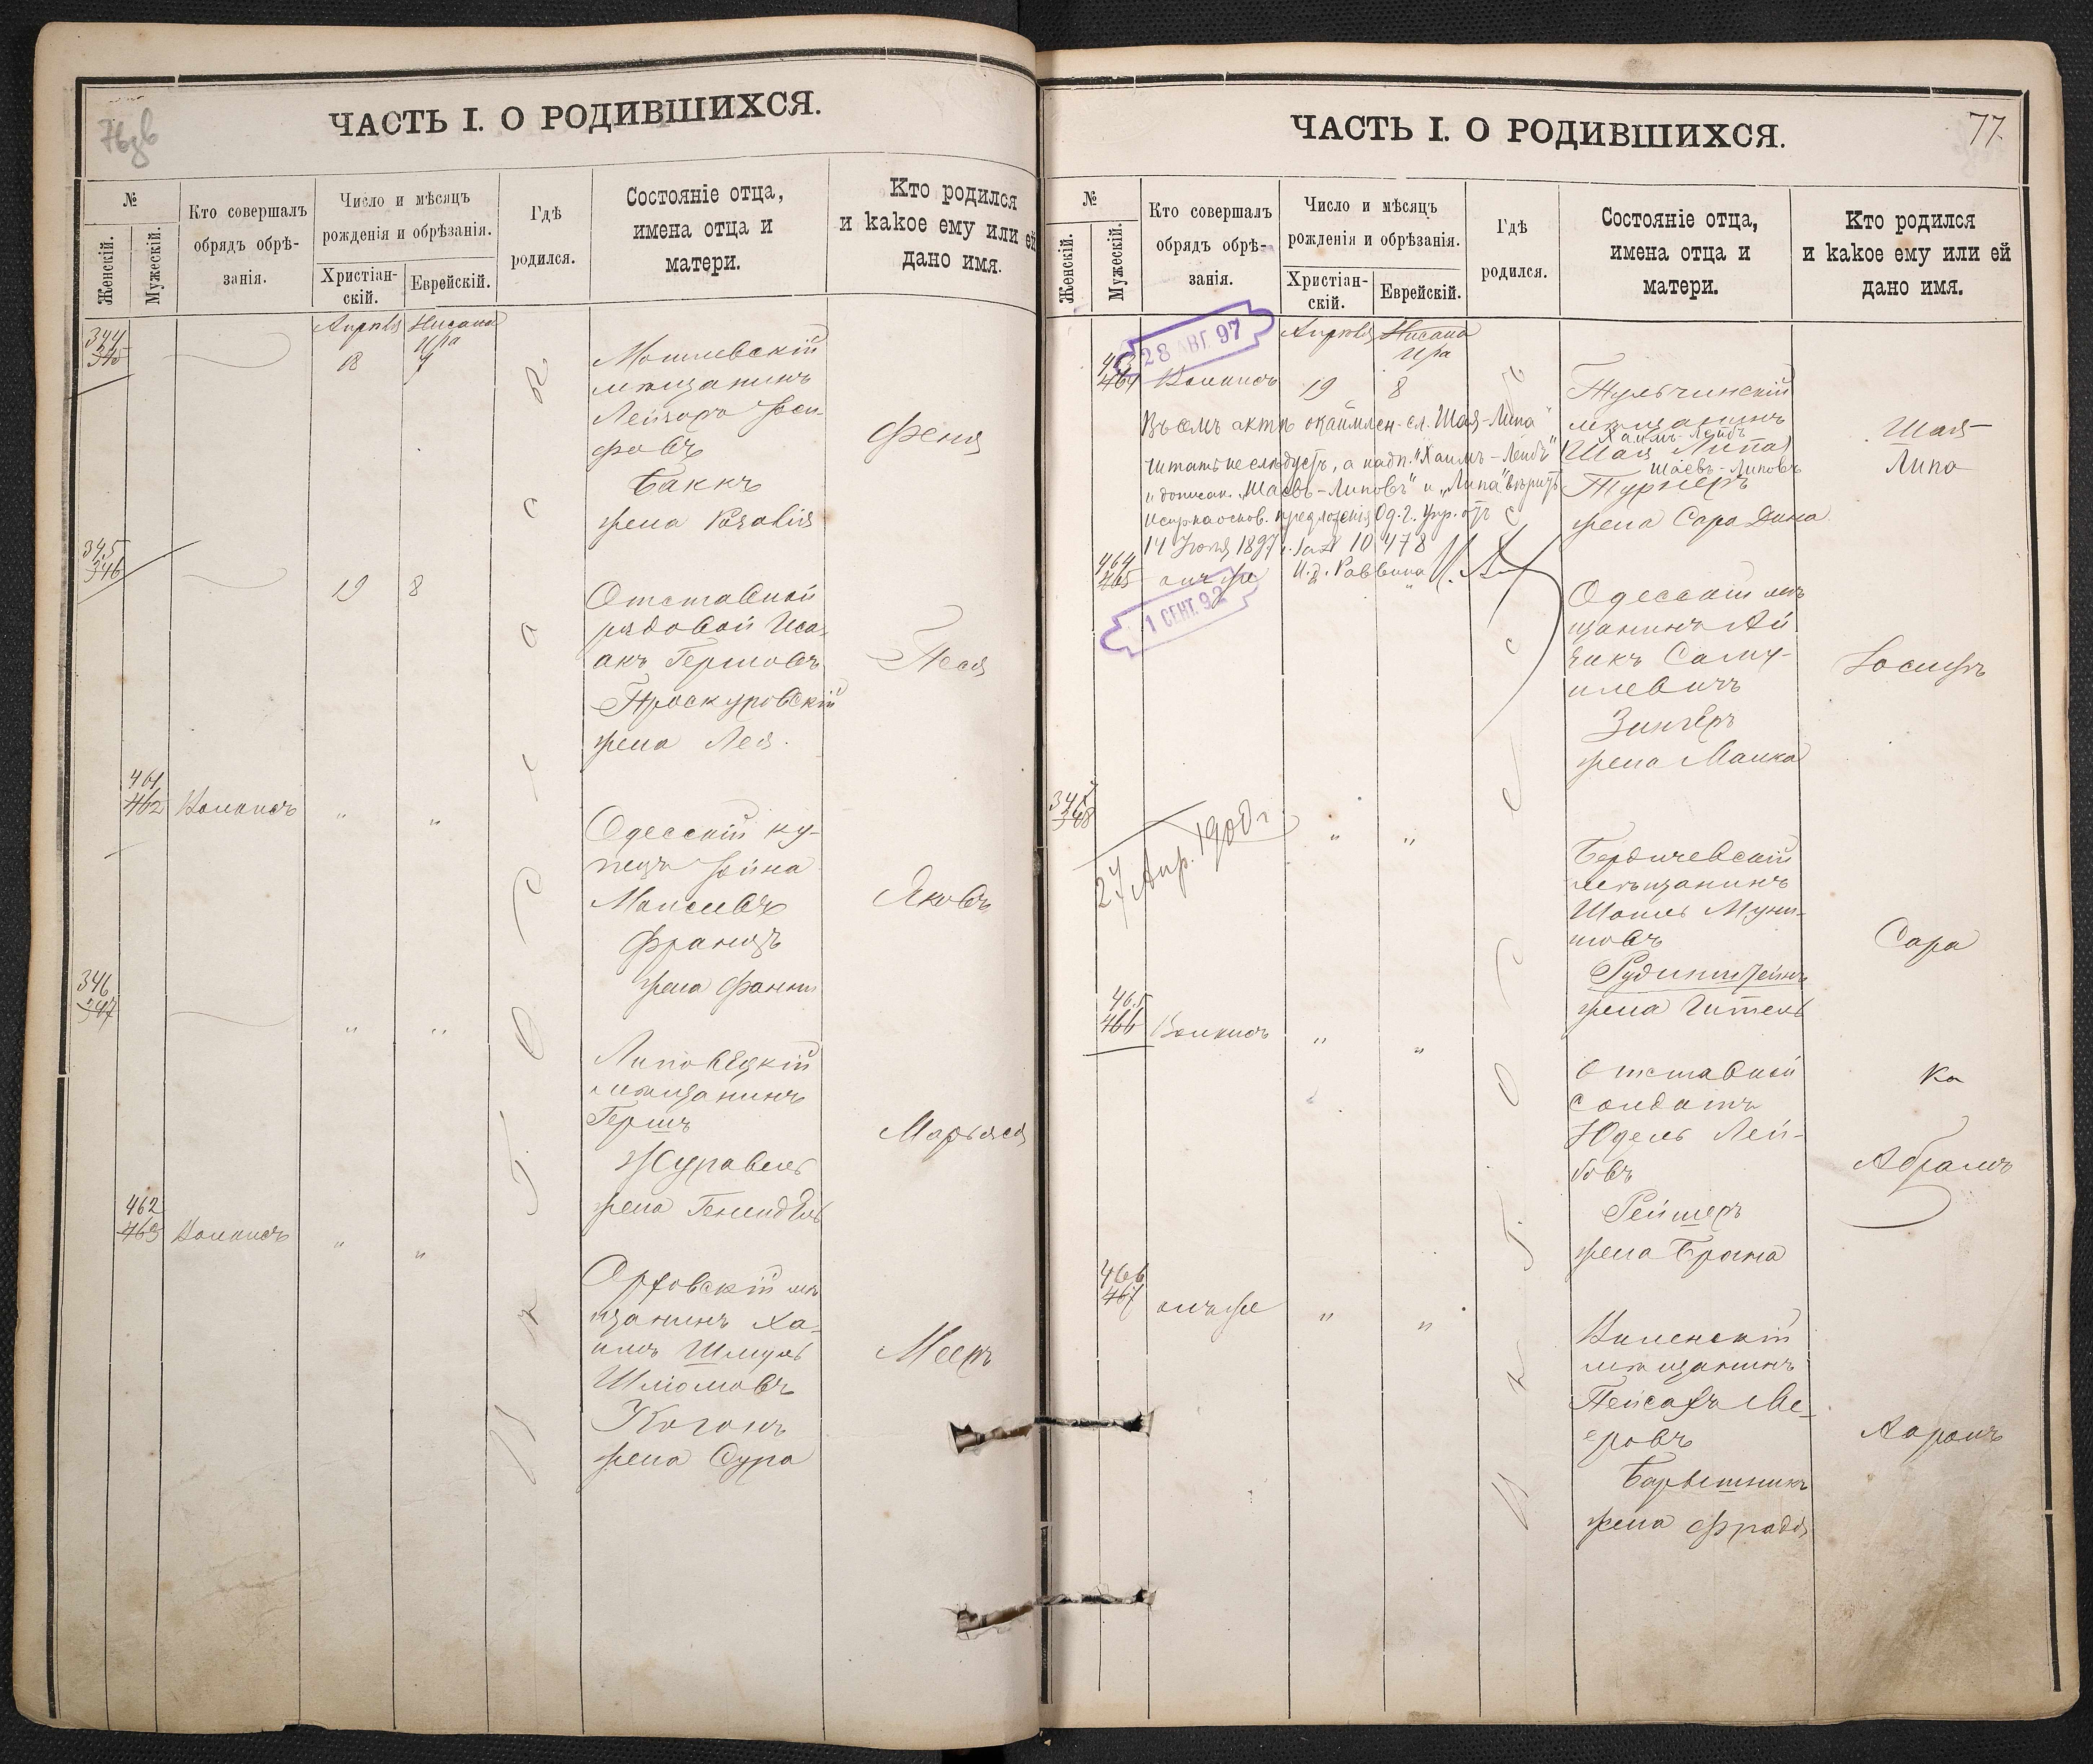 76 об
ЧАСТЬ I. О РОДИВШИХСЯ.
№
Женскій.
Мужескій.
Кто совершалъ
обрядъ обрѣ-
занія.
Число и мѣсяцъ
рожденія и обрѣзанія.
Христіан-
скій.
Еврейскій.
Гдѣ
родился.
Состояніе отца,
имена отца и
матери.
Кто родился
и какое ему или ей
дано имя.
344
345
Апрѣля
18
Нисана
Ира
7
Могилевскій
мѣщанинъ
Лейзоръ Іоси-
фовъ
Баккъ
жена Розалія
Феня
345
346
19
8
Отставной
рядовой Иса-
акъ Гершовъ
Проскуровскій
жена Лея.
Песя
461
462
"
"
Одесскій ку-
пецъ Іойна
Моисеевъ
Францъ
жена Фанни
Яковъ
346
347
"
"
Липовецкій
мѣщанинъ
Гершъ
Журавель
жена Генендель
Марьяся
462
463
"
"
Орховскій мѣ
щанинъ Ха-
имъ Шмуль
Шліомовъ
Коганъ
жена Сура
Мееръ
въ г. Одессѣ
77
ЧАСТЬ I. О РОДИВШИХСЯ.
№
Женскій.
Мужескій.
Кто совершалъ
обрядъ обрѣ-
занія.
Число и мѣсяцъ
рожденія и обрѣзанія.
Христіан-
скій.
Еврейскій.
Гдѣ
родился.
Состояніе отца,
имена отца и
матери.
Кто родился
и какое ему или ей
дано имя.
28 АВГ. 97
463
464
Апрѣля
19
Нисана
Ира
8
Тульчинскій
мѣщанинъ
Хаимъ-Лейбъ
Шая Липа
Шаевъ-Липовъ
Турнеръ
жена Сара Дина
Шая
Липа
Въ семъ актѣ окаймлен. сл. "Шая-Липа"
читать не слѣдуетъ, а надп. "Хаимъ-Лейбъ"
и дописан. "Шаевъ-Липовъ" и "Липа" вѣрить
Испр. на основ. предложенія Од. г. Упр. отъ
14 Іюля 1897 г. за № 10478
И. д. Раввина
464
465
онъ же
1 СЕНТ. 92
"
Одесскій мѣ
щанинъ Ай
зикъ Саму-
илевичъ
Зингеръ
жена Малка
Іосифъ
347
348
27 Апр. 1900 г.
"
"
Бердичевскій
мѣщанинъ
жена Гитель
Сара
465
466
"
"
Отставной
солдатъ
Юдель Лей-
бовъ
Рейшеръ
жена Брана
Абрамъ
466
467
онъ же
"
"
Виленскій
мѣщанинъ
Пейсахъ Ме-
еровъ
Барышникъ
жена Фрадя
Ааронъ